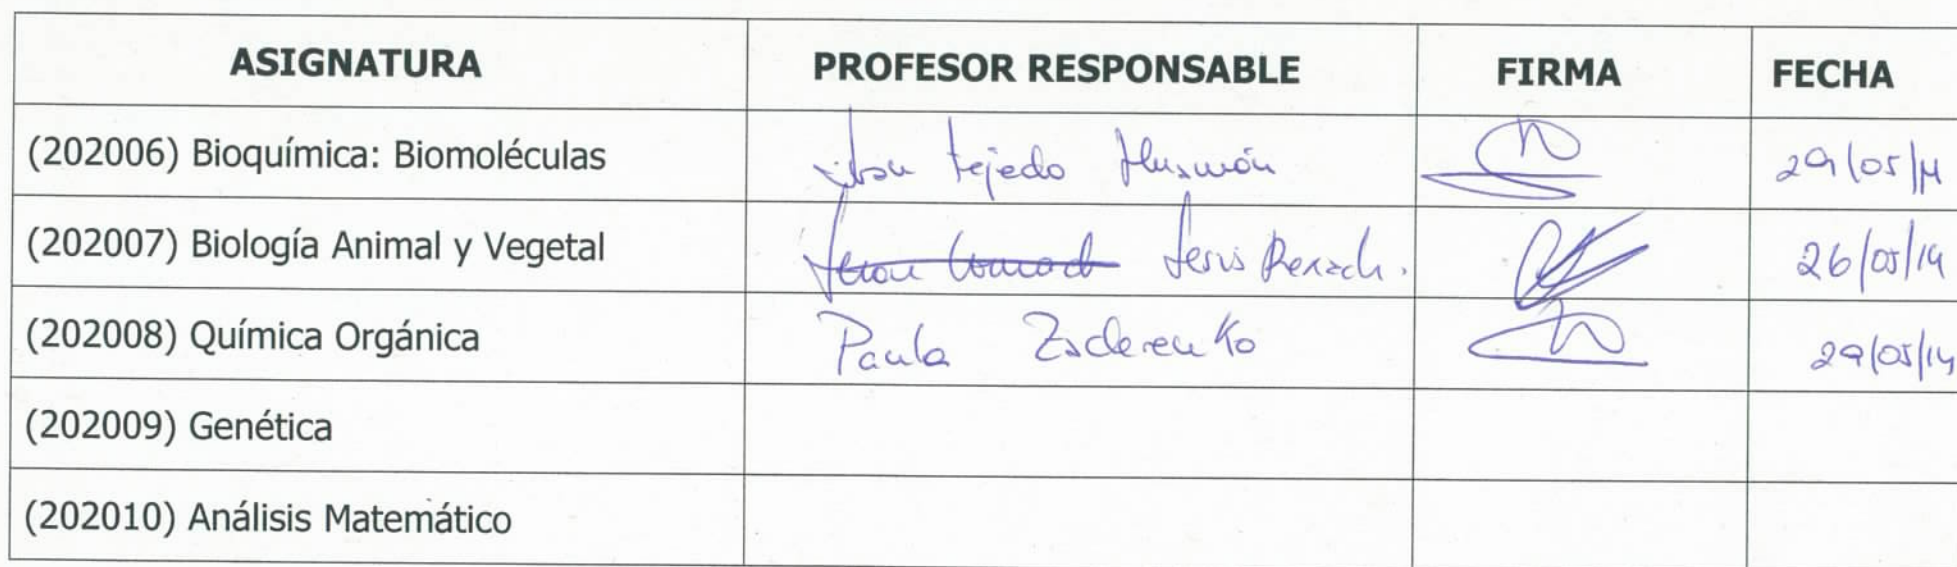 ASIGNATURA PROFESOR RESPONSABLE FIRMA FECHA
(202006) Bioquímica: Biomoléculas Tejedo 29/05/14
(202007) Biología Animal y Vegetal Jesús 26/05/14
(202008) Química Orgánica Paula 29/05/14
(202009) Genética
(202010) Análisis Matemático